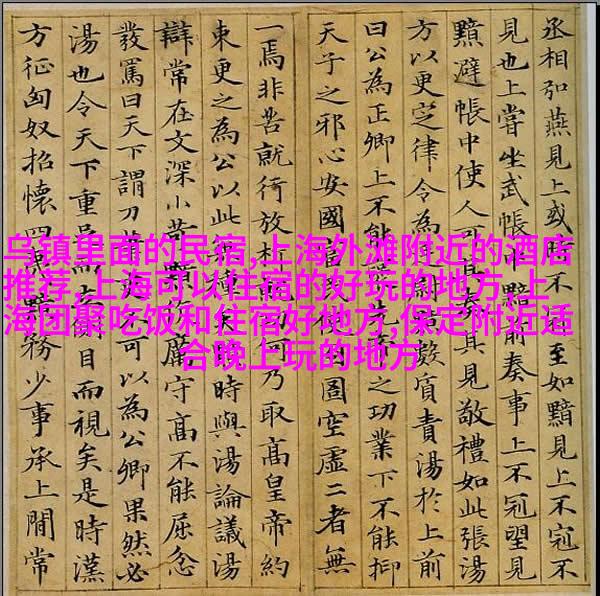 乌镇里面的民宿,上海外滩附近的酒店
推荐,上海可以住宿的好玩的地方,上
海团聚吃饭和住宿好地方,保定附近适
合晚上玩的地方
丞相弘燕見上或時不至如黯見上不冠不
見也上嘗坐武帳中黯前奏事上不冠望見
黯避帳中使人可其奏其見敬禮如此張湯
方以更定律令為數質責湯於上前
曰公為正卿上不能之功業下不能抑
天子之邪心安國富民圄空虛二者無
一焉非苦就行放何乃取高皇帝約
束更之為公以此時與湯論議湯
辯常在文深小苛厲守高不能屈忿
發罵曰天下謂刀可以為公卿果然必
湯也令天下重足目而視矣是時漢
方征匈奴招懷四夷黯務少事承上間常